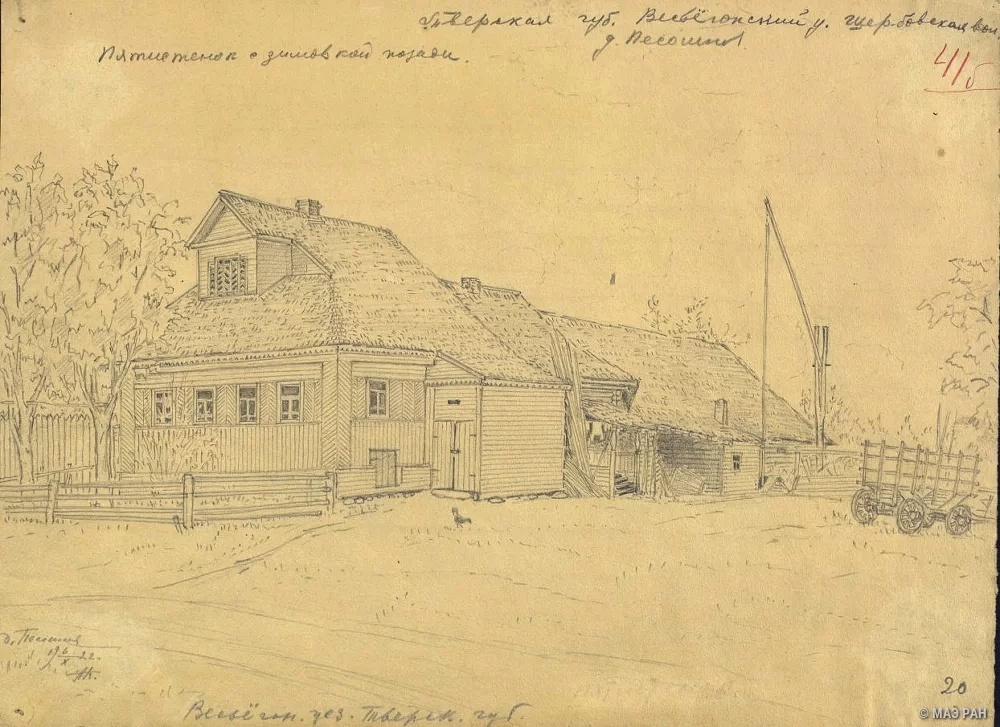 Тверская губ. Весьёгонский у. Щербовская вол
д. Песошня
41/б
Пятистенок с зимовкой позади.
д. Песошня
22.
Весьёгон. уез. Тверск. губ.
20
© МАЭ РАН